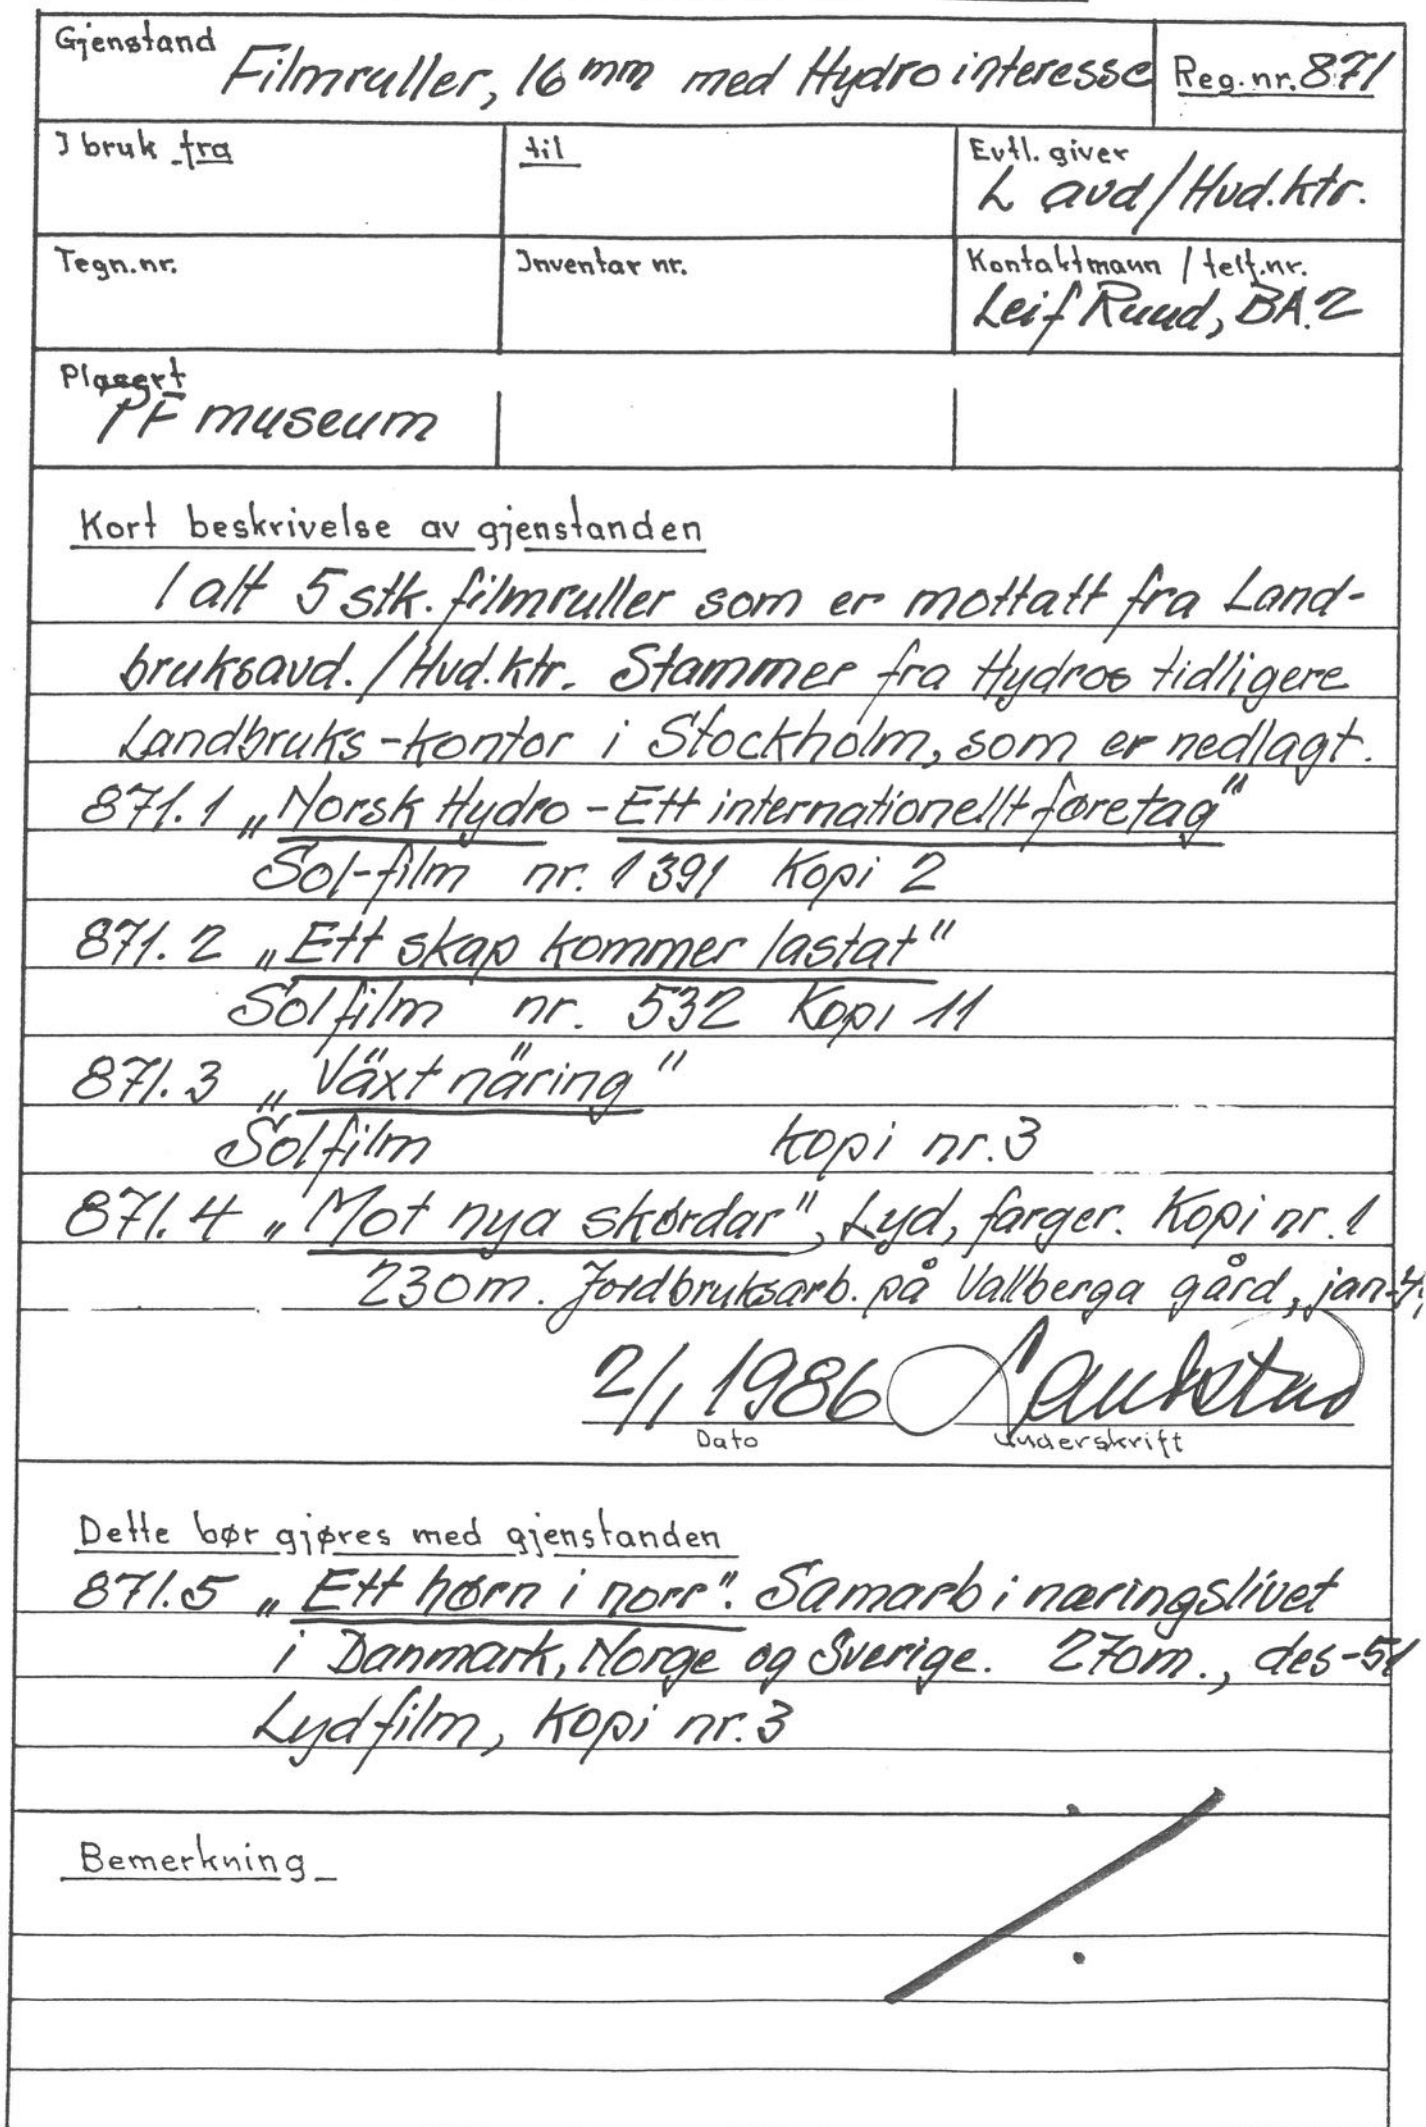 Gjenstand Filmruller, 16 mm med Hydro interesse Reg. nr. 871
I bruk fra til Evtl. giver
L avd/Hvd.ktr.
Tegn.nr. Inventar nr. Kontaktmann / telf.nr.
Leif Ruud, BA.2
Plassert
PF museum
Kort beskrivelse av gjenstanden
I alt 5 stk. filmruller som er mottatt fra Land-
bruksavd./Hvd.ktr. Stammer fra Hydros tidligere
Landbruks-kontor i Stockholm, som er nedlagt.
871.1 „Norsk Hydro - Ett internationellt føretag"
Sol-film nr. 1391 Kopi 2
871.2 „Ett skap kommer lastat"
Solfilm nr. 532 Kopi 11
871.3 „Växtnäring"
Solfilm Kopi nr. 3
871.4 „Mot nya skørdar", Lyd, farger. Kopi nr. 1
230m. Jordbruksarb. på Vallberga gård, jan.
2/1 1986
Dato Underskrift
Dette bør gjøres med gjenstanden
871.5 „Ett hørn i norr". Samarb i næringslivet
i Danmark, Norge og Sverige. 270m., des-51
Lydfilm, Kopi nr. 3
Bemerkning